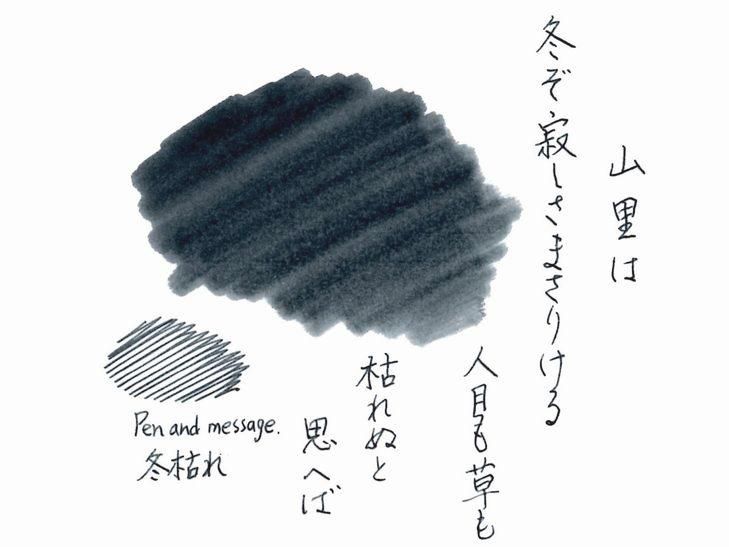 山里は
冬ぞ寂しさまさりける
人目も草も
枯れぬと
思へば
Pen and message.
冬枯れ